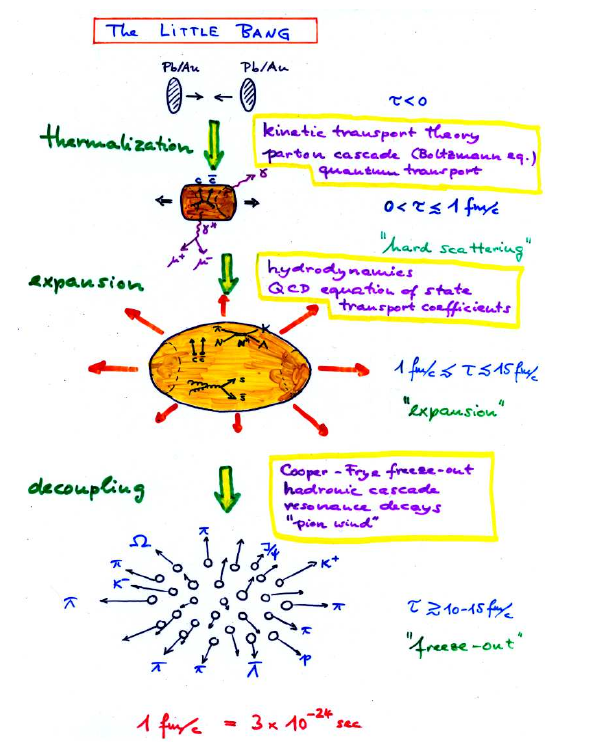 The LITTLE BANG
Pb/Au Pb/Au
τ<0
thermalization
kinetic transport theory
parton cascade (Boltzmann eq.)
quantum transport
c c̄ γ
0 < τ ≲ 1 fm/c
γ*
μ⁺ μ⁻
"hard scattering"
expansion
hydrodynamics
QCD equation of state
transport coefficients
π K
N N* Λ
c c̄
1 fm/c ≲ τ ≲ 15 fm/c
s
s̄
"expansion"
decoupling
Cooper-Frye freeze-out
hadronic cascade
resonance decays
"pion wind"
Ω π J/ψ
π K⁺
K⁻
π π
τ ≳ 10-15 fm/c
π
"freeze-out"
π π Λ̄ p
1 fm/c = 3 × 10⁻²⁴ sec